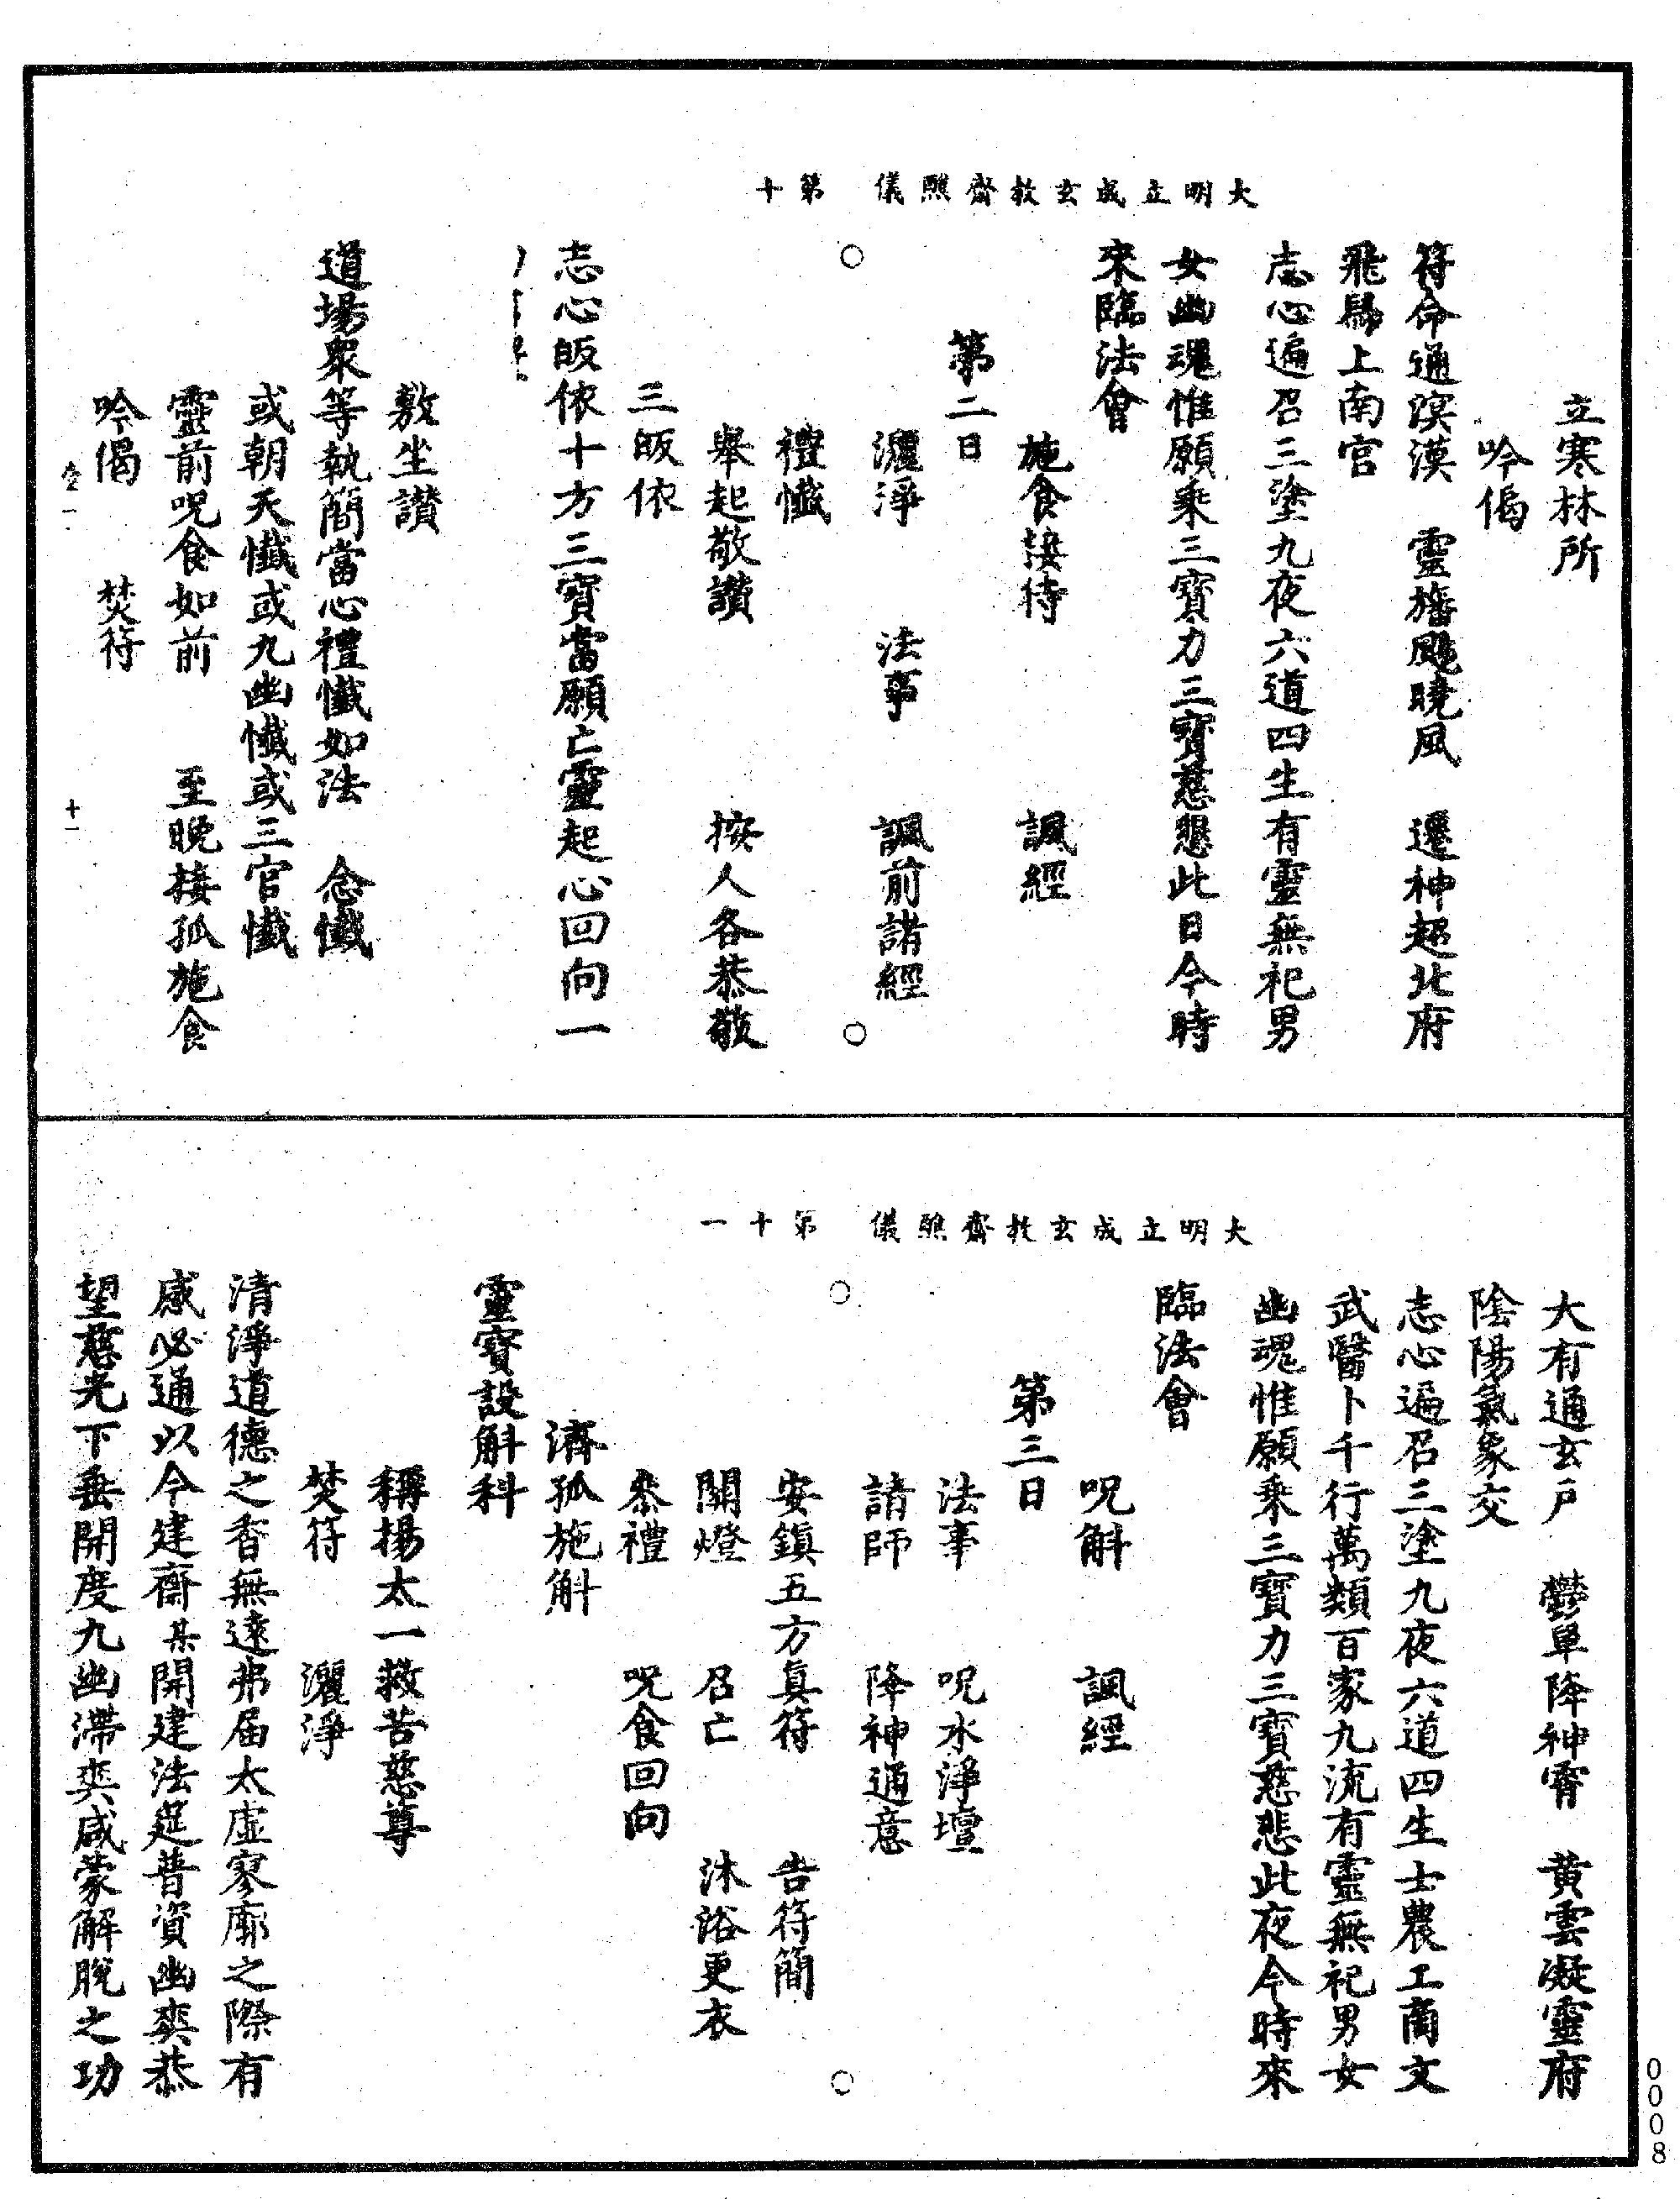 大明立成玄教齋醮儀　第十
立寒林所
吟偈
符命通溟漠　靈旛颺曉風　遷神超北府
飛舄上南宮
志心遍召三塗九夜六道四生有靈無祀男
女幽魂惟願乘三寶力三寶慈懇此日今時
來臨法會
施食接待　諷經
第二日
灑淨　法事　諷前諸經
禮懺
舉起敬讚　按人各恭敬
三皈依
志心皈依十方三寶當願亡靈起心回向一
敷坐讃
道場衆等執簡當心禮懺如法　念懺
或朝天懺或九幽懺或三官懺
靈前呪食如前　至晚接孤施食
吟偈　焚符
十一
大明立成玄教齋醮儀　第十一
大有通玄戶　鬱單降神霄　黃雲凝靈府
陰陽氣象交
志心遍召三塗九夜六道四生士農工商文
武醫卜千行萬類百家九流有靈無祀男女
幽魂惟願乘三寶力三寶慈悲此夜今時來
臨法會
呪斛　諷經
第三日
法事　呪水淨壇
請師　降神通意
安鎮五方真符　告符簡
關燈　召亡　沐浴更衣
叅禮　呪食回向
濟孤施斛
靈寶設斛科
稱揚太一救苦慈尊
焚符　灑淨
清淨道德之香無遠弗届太虛寥廓之際有
感必通以今建齋某開建法筵普資幽爽恭
望慈光下垂開度九幽滯爽咸蒙解脫之功
0008